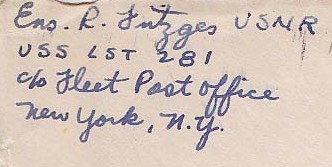 Ens. R. Fritzges USNR
USS LST 281
c/o Fleet Post Office
New York, N.Y.